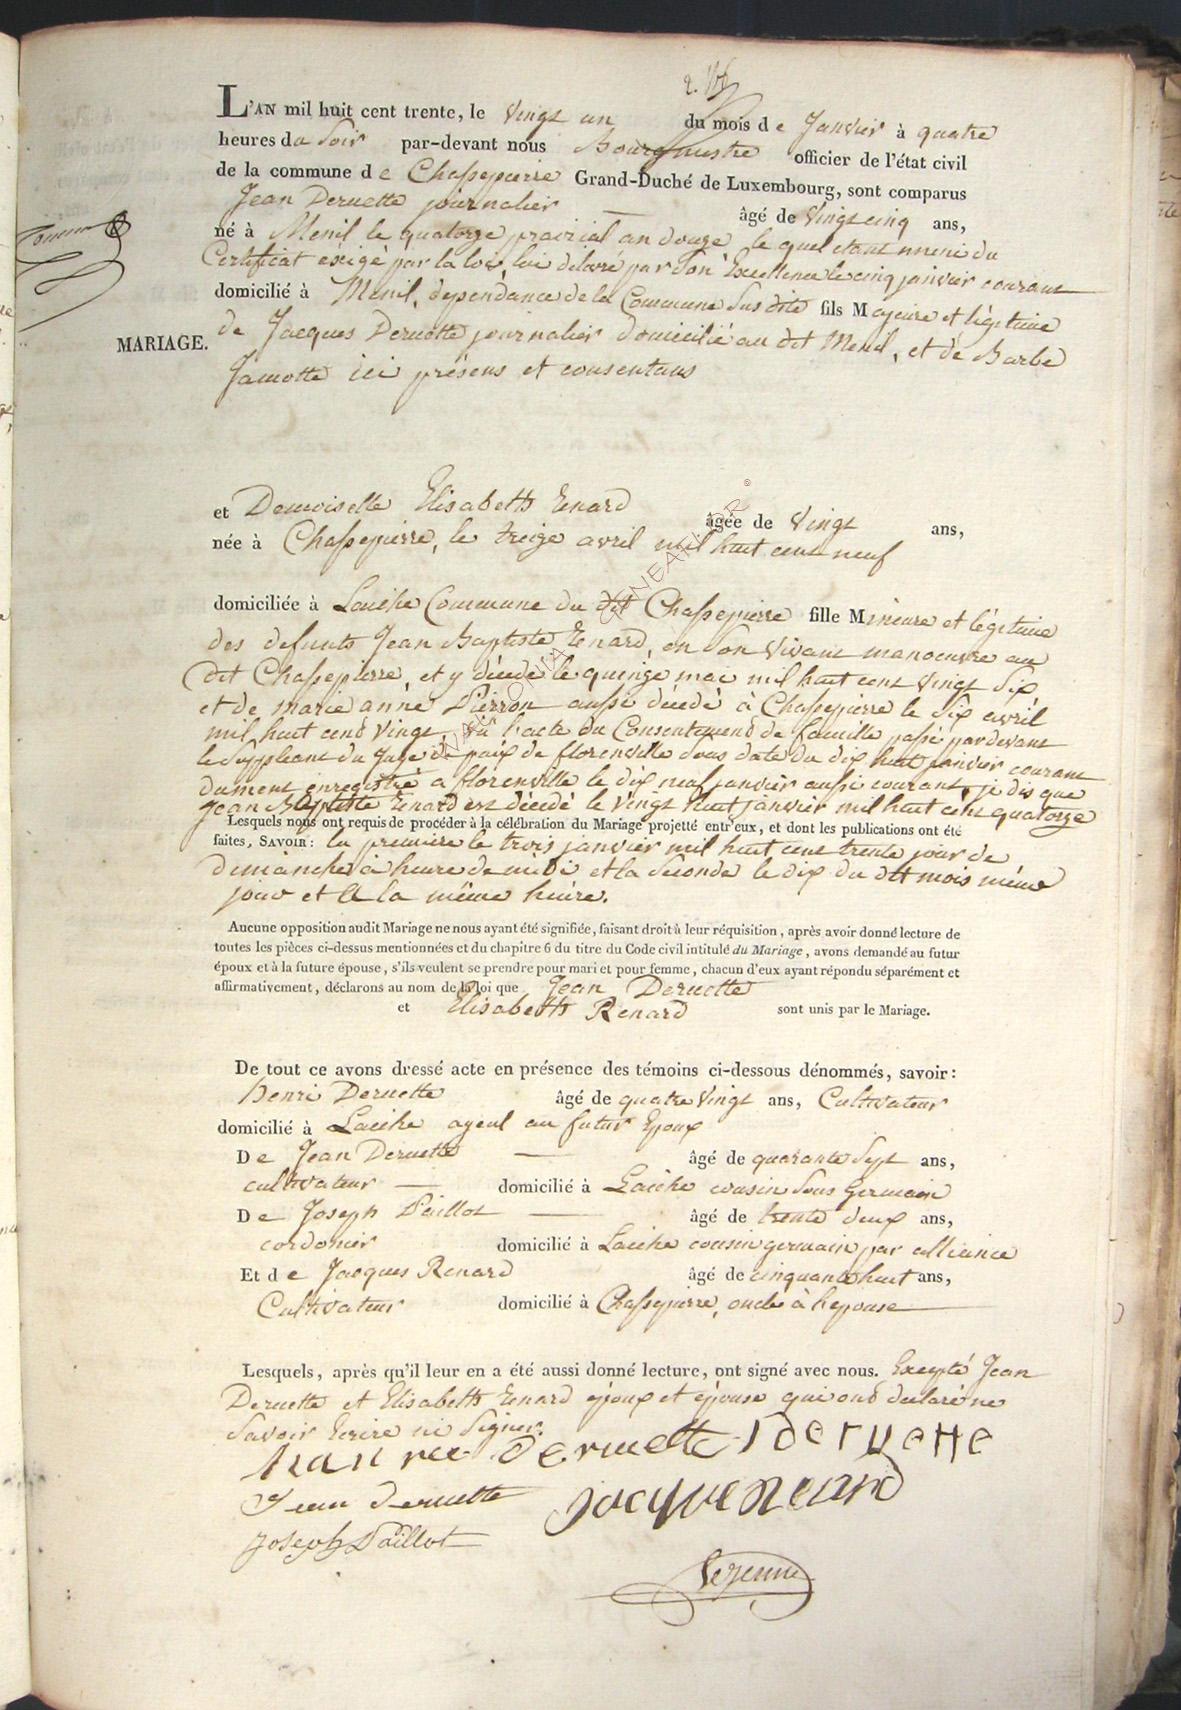 L'AN mil huit cent trente, le vingt un du mois de Janvier à quatre
heures du soir par-devant nous Bourgmestre officier de l'état civil
de la commune de Chassepierre Grand-Duché de Luxembourg, sont comparus
Jean Deruette journalier — âgé de vingt cinq ans,
né à Menil le quatorze prairial an douze, le quel etant muni du
Certificat éxigé par la loi, lui délivré par Son Excellence le cinq janvier courant
domicilié à Menil, dependance de la Commune susdite fils Majeure et légitime
MARIAGE.
de Jacques Deruette journalier domicilié au dit Menil, et de Barbe
Jamotte ici présens et consentans
et Demoiselle Elisabeth Renard âgée de vingt ans,
née à Chassepierre, le treize avril mil huit cent neuf
domiciliée à Laiche Commune du dit Chassepierre fille Mineure et légitime
des defunts Jean Baptiste Renard, en son vivant manoeuvre au
dit Chassepierre, et y décédé le quinze mai mil huit cent vingt six
et de marie anne Pierron aussi décédé à Chassepierre le six avril
mil huit cent vingt, vu l'acte du Consentement de famille passé pardevant
le suppleant du Juge de paix de florenville sous date du dix huit janvier courant
dument enregistré a florenville le dix neuf janvier aussi courant, je dis que
Jean Baptiste Renard est décédé le vingt huit janvier mil huit cent quatorze
Lesquels nous ont requis de procéder à la célébration du Mariage projetté entr'eux, et dont les publications ont été
faites, SAVOIR: la première le trois janvier mil huit cent trente jour de
dimanche à heure de midi et la seconde le dix du dit mois même
jour et a la même heure.
Aucune opposition audit Mariage ne nous ayant été signifiée, faisant droit à leur réquisition, après avoir donné lecture de
toutes les pièces ci-dessus mentionnées et du chapitre 6 du titre du Code civil intitulé du Mariage, avons demandé au futur
époux et à la future épouse, s'ils veulent se prendre pour mari et pour femme, chacun d'eux ayant répondu séparément et
affirmativement, déclarons au nom de la loi que Jean Deruette
et Elisabeth Renard sont unis par le Mariage.
De tout ce avons dressé acte en présence des témoins ci-dessous dénommés, savoir:
henri Deruette âgé de quatre vingt ans, Cultivateur
domicilié à Laiche ayeul au futur Epoux
De Jean Deruette — âgé de quarante sept ans,
cultivateur — domicilié à Laiche cousin sous Germain
De Joseph Paillot — âgé de trente deux ans,
cordonier domicilié à Laiche cousin germain par alliance
Et de Jacques Renard âgé de cinquante huit ans,
Cultivateur domicilié à Chassepierre, oncle à l'epouse
Lesquels, après qu'il leur en a été aussi donné lecture, ont signé avec nous. Excepté Jean
Deruette et Elisabeth Renard epoux et épouse qui ont declaré ne
Savoir Ecrire ni Signer.
Deruette J deruette
Jean deruette Jacque Renard
Joseph Paillot